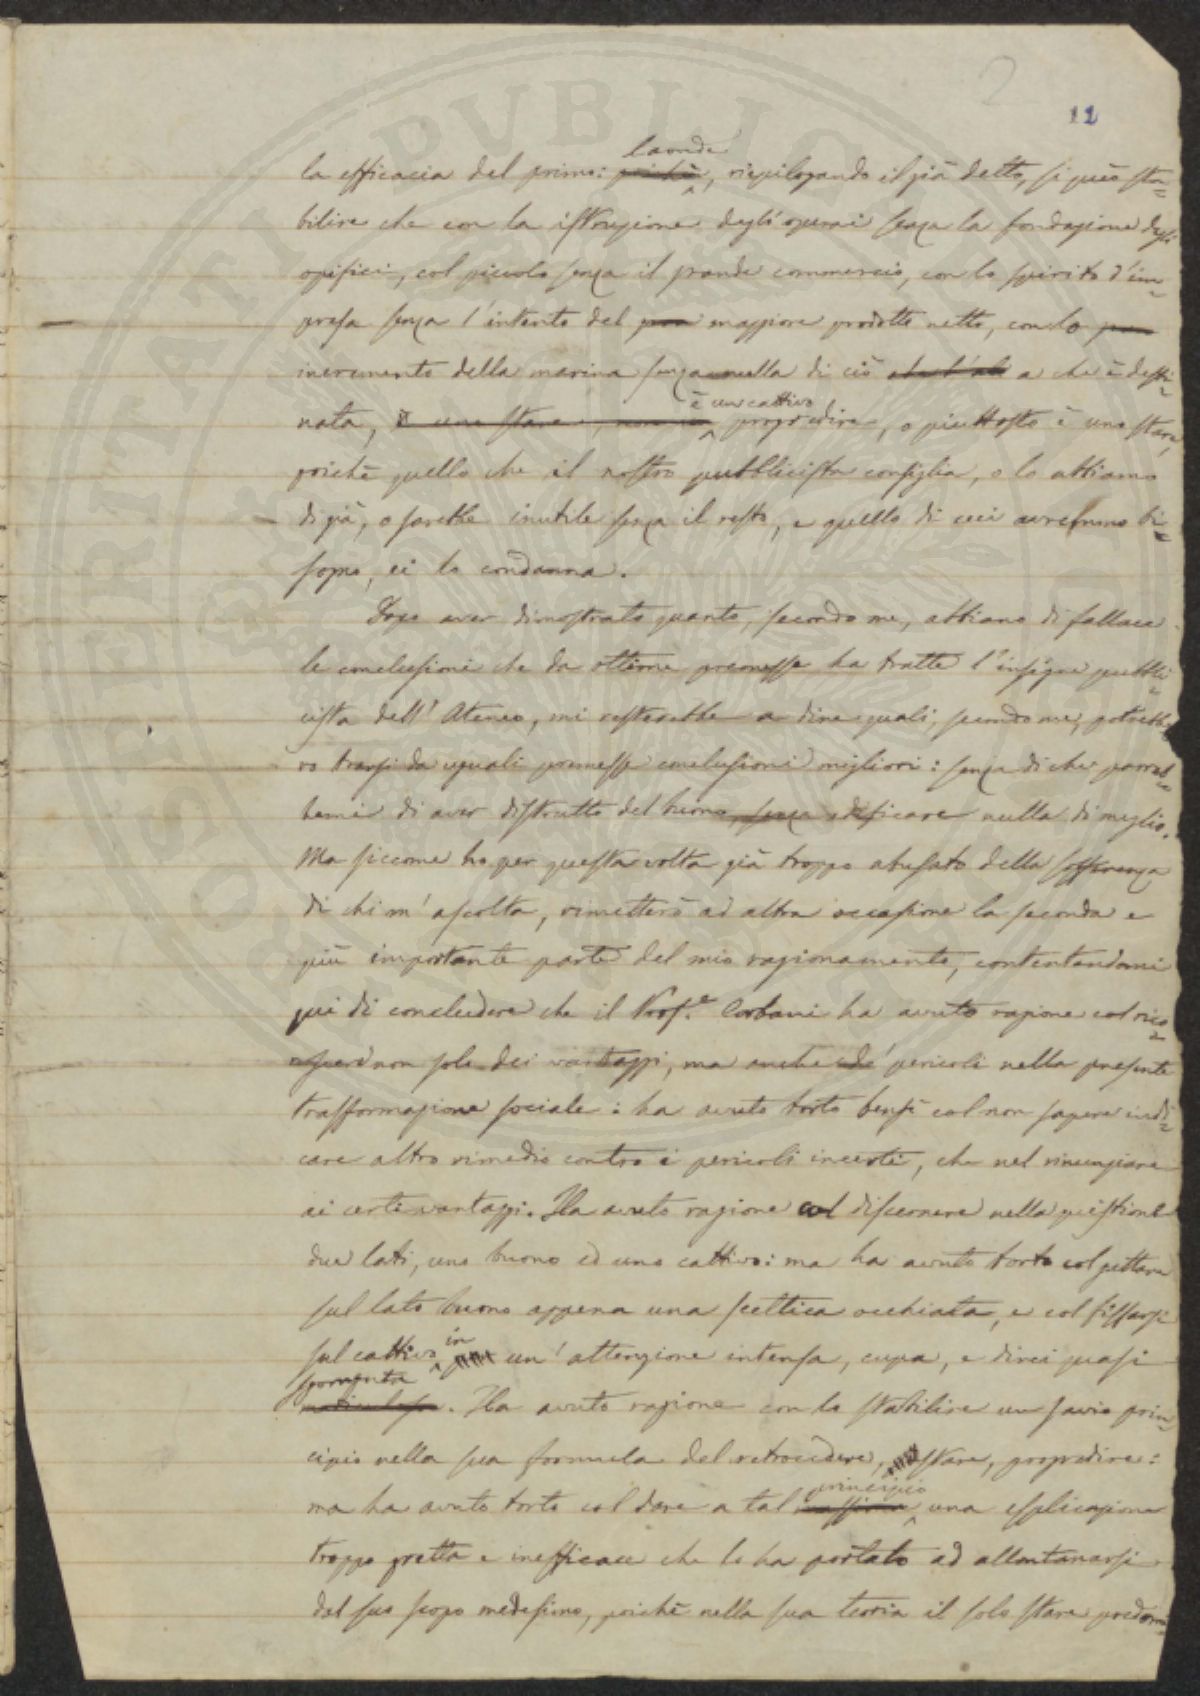 2
12
la efficacia del primo: laonde, riepilogando il già detto, si può sta=
bilire che con la istruzione degli operai senza la fondazione degli
opifici, col piccolo senza il grande commercio, con lo spirito d'im=
presa senza l'intento del maggiore prodotto netto, con lo
incremento della marina senza nulla di ciò a che è desti=
nata, è un cattivo progredire, o piuttosto è uno stare,
poichè quello che il nostro pubblicista consiglia, o lo abbiamo
di già, o sarebbe inutile senza il resto, e quello di cui avremmo bi=
sogno, ei lo condanna.
Dopo aver dimostrato quanto, secondo me, abbiano di fallace
le conclusioni che da ottime premesse ha tratte l'insigne pubbli=
cista dell'Ateneo, mi resterebbe a dire quali, secondo me, potrebbe
ro trarsi da uguali premesse conclusioni migliori: senza di che parreb=
bemi di aver distrutto del buono, senza edificare nulla di meglio.
Ma siccome ho per questa volta già troppo abusato della sofferenza
di chi m'ascolta, rimetterò ad altra occasione la seconda e
più importante parte del mio ragionamento, contentandomi
qui di concludere che il Prof.e Corbani ha avuto ragione col rico=
noscere non solo dei vantaggi, ma anche de' pericoli nella presente
trasformazione sociale: ha avuto torto bensì col non sapere indi=
care altro rimedio contro i pericoli incerti, che nel rinunziare
ai certi vantaggi. Ha avuto ragione col discernere nella quistione
due lati, uno buono ed uno cattivo: ma ha avuto torto col gettare
sul lato buono appena una scettica occhiata, e col fissarsi
sul cattivo in un'attenzione intensa, cupa, e direi quasi
spaventa. Ha avuto ragione con lo stabilire un savio prin=
cipio nella sua formula del retrocedere, stare, progredire:
ma ha avuto torto col dare a tal principio una esplicazione
troppo gretta e inefficace che lo ha portato ad allontanarsi
dal suo scopo medesimo, poichè nella sua teoria il solo stare predomi=